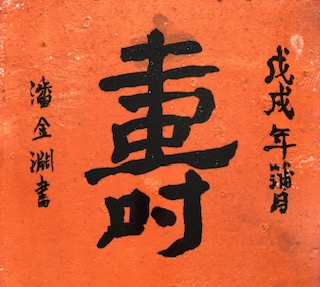 戊戌年蒲月
壽
潘金淵書